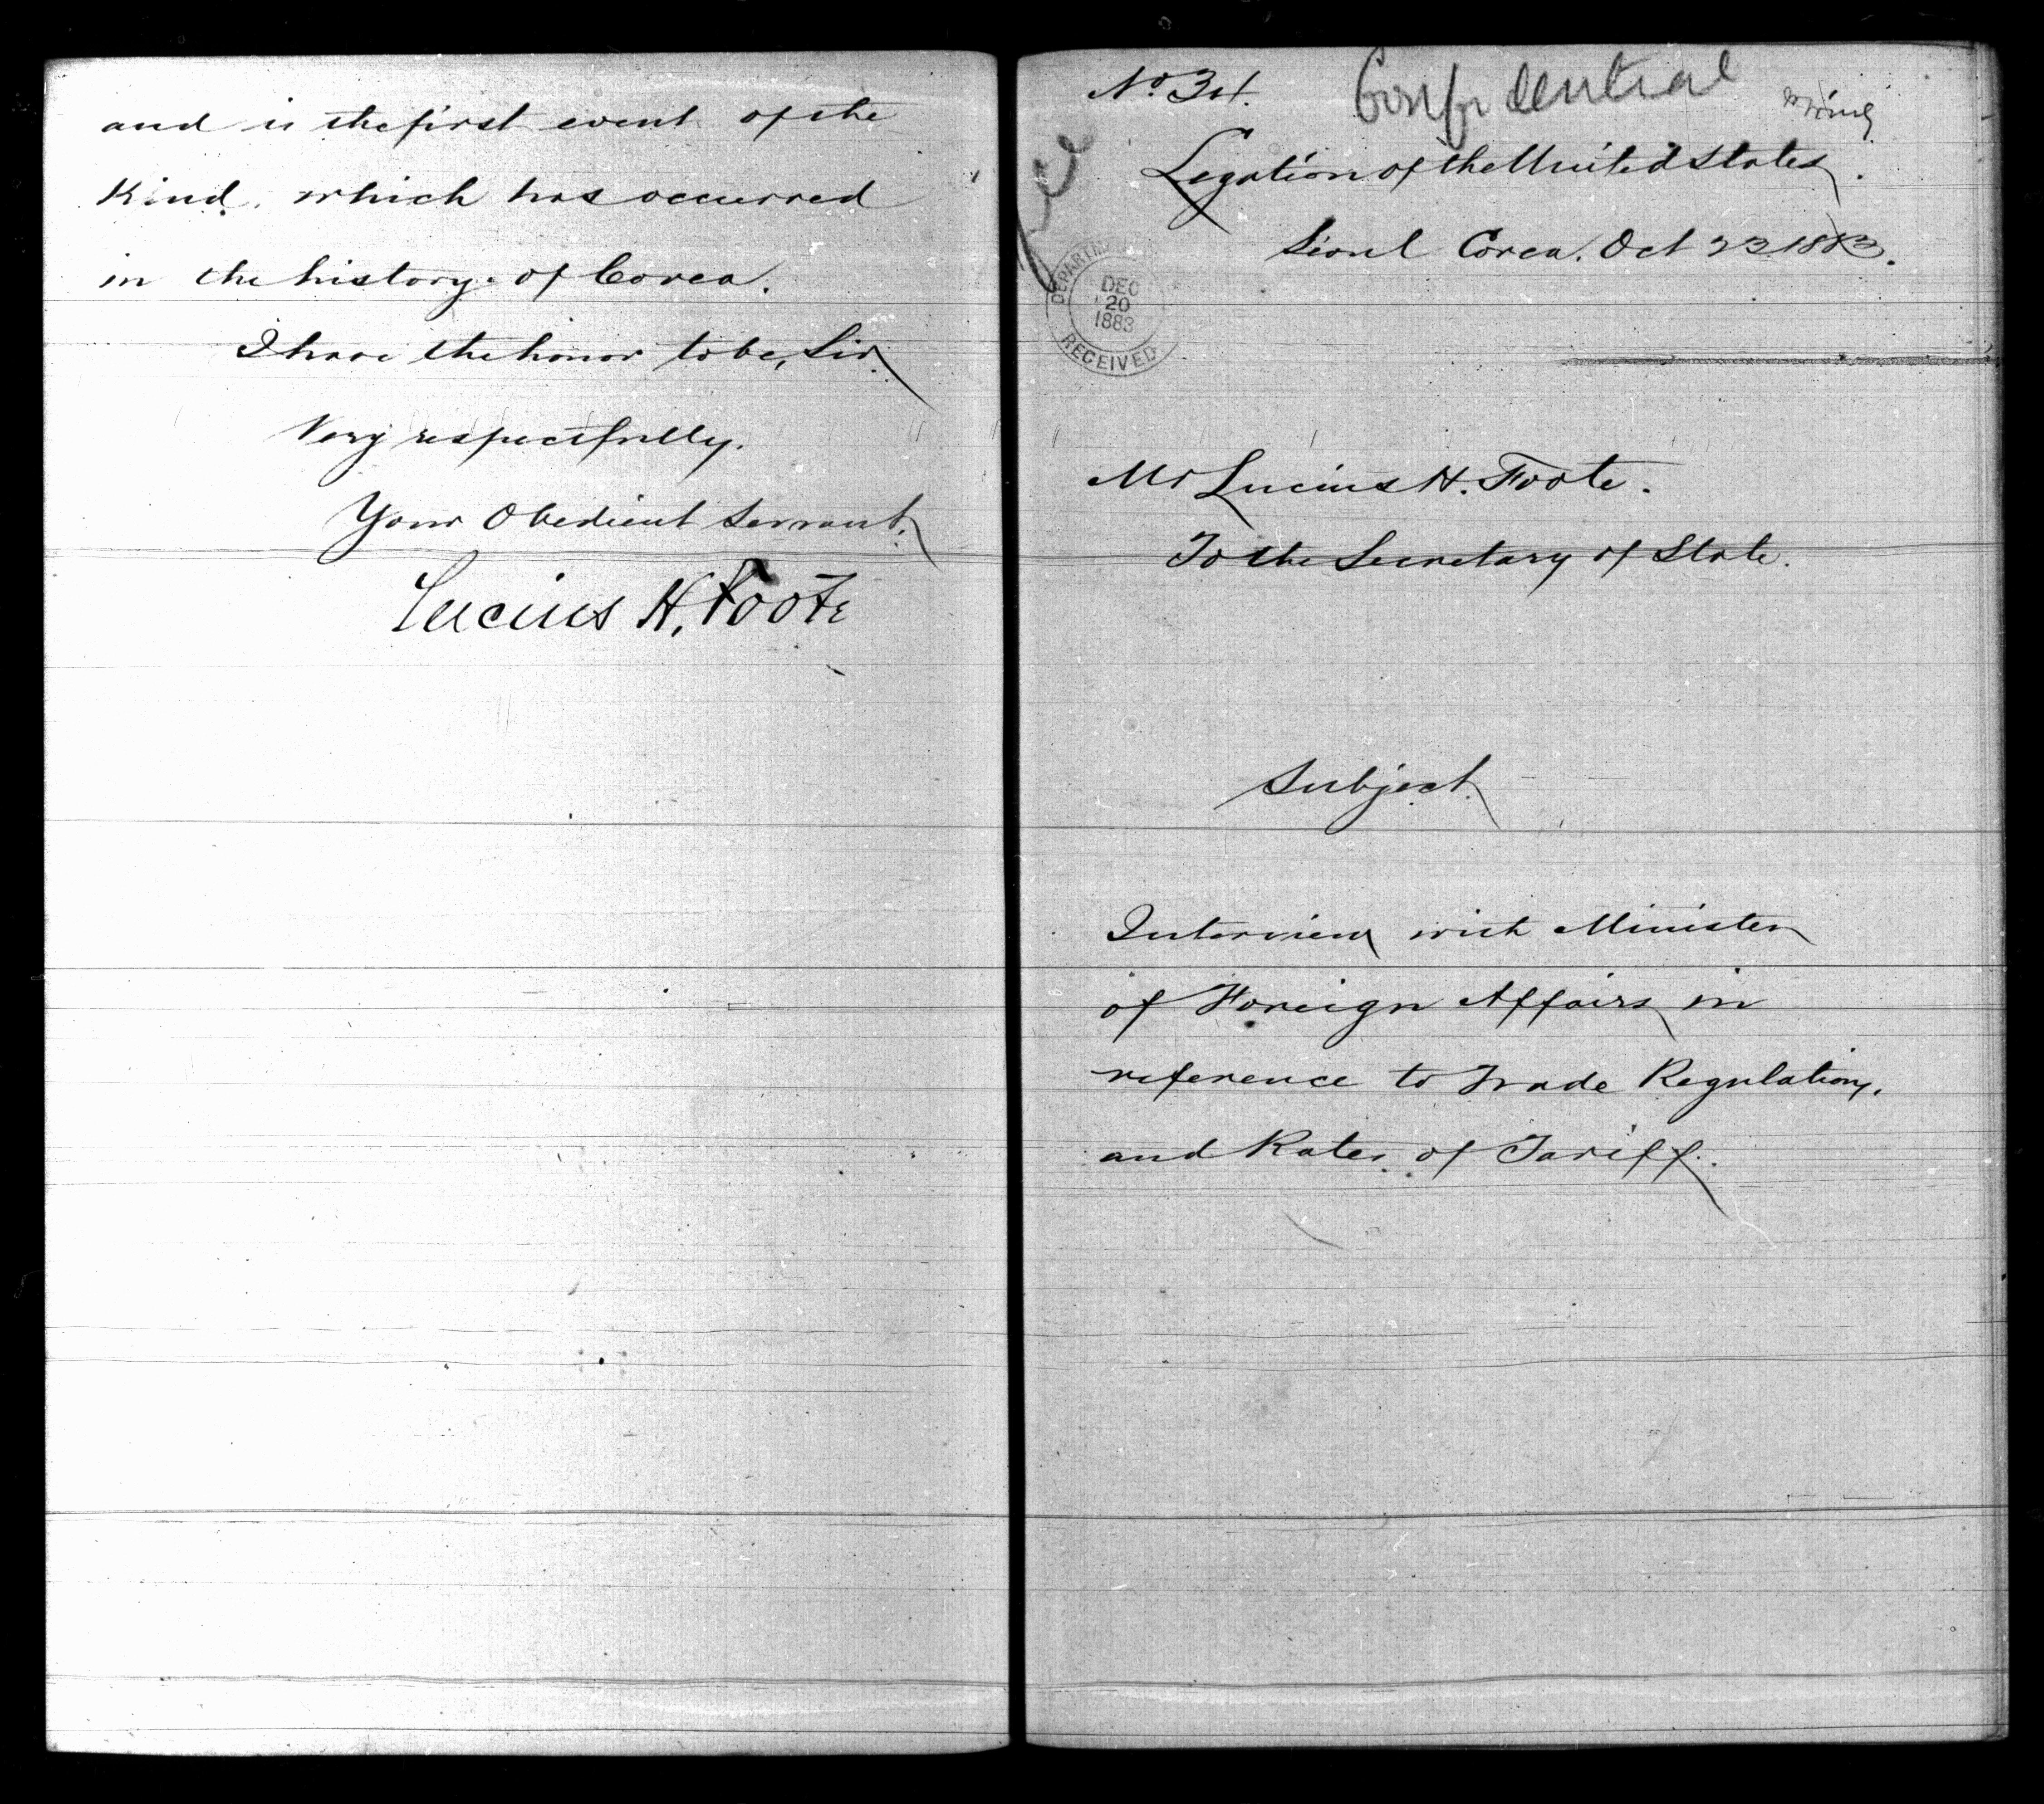 and is the first event of the
Kind, which has occurred
in the history of Corea.
I have the honor to be, Sir,
Very respectfully,
Your Obedient Servant,
Lucius H. Foote
Confidential
No 34.
Legation of the United States,
Séoul Corea. Oct 23 1883.
DEC
20
1883
RECEIVED
Mr Lucius H. Foote.
To the Secretary of State.
Subject.
Interview with Minister
of Foreign Affairs in
reference to Trade Regulations,
and Rates of Tariff.